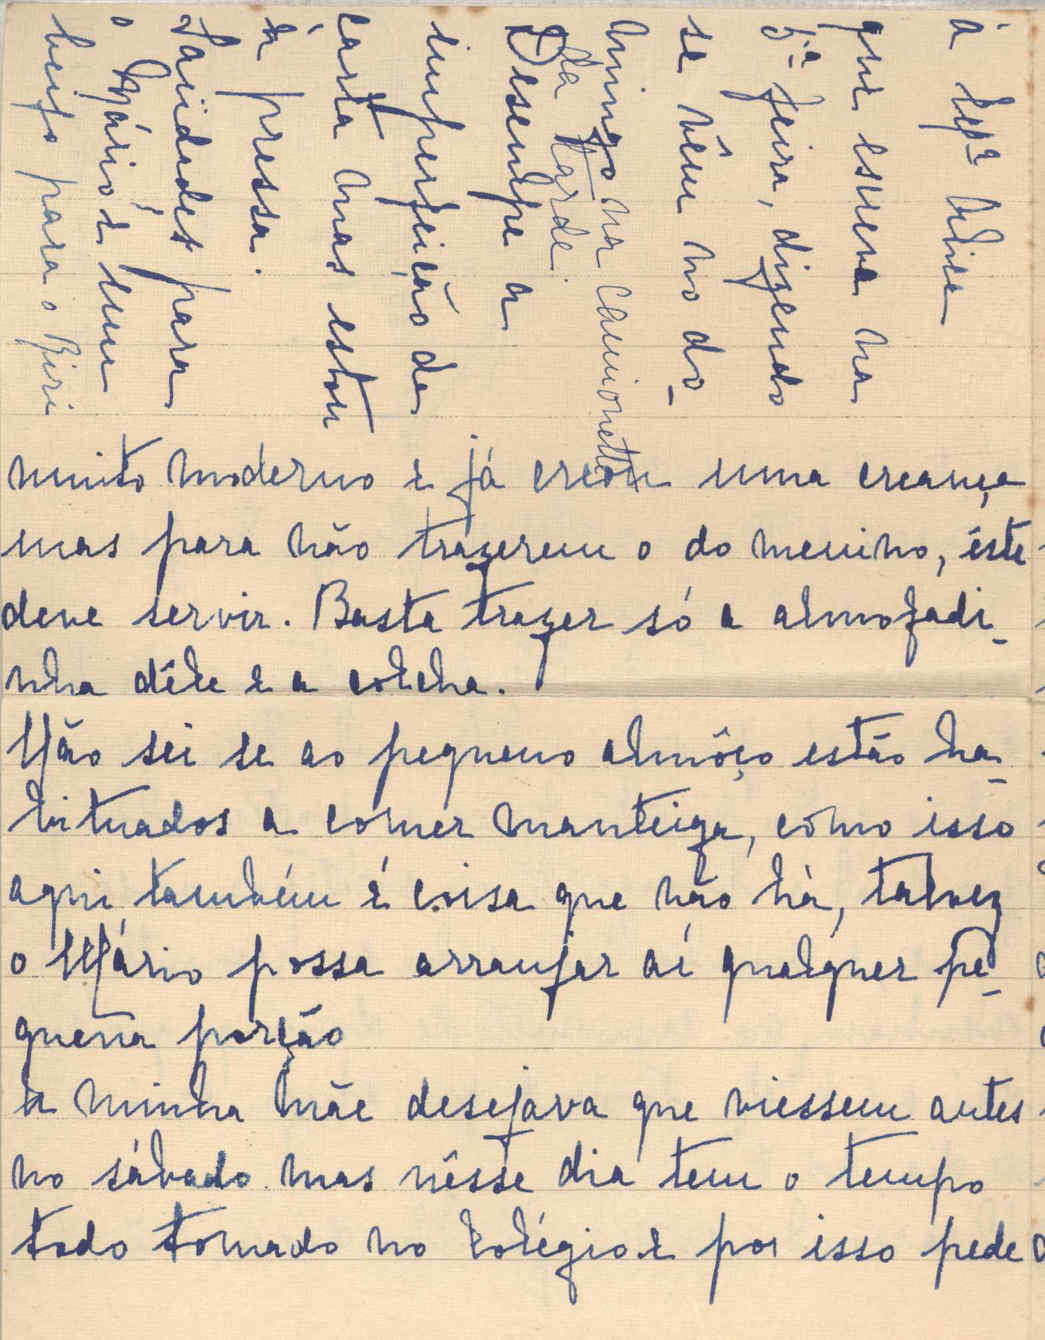 muito moderno e já creou uma creança
mas para não trazerem o do menino, êste
deve servir. Basta trazer só a almofadi-
nha dêle e a colcha.
Não sei se ao pequeno almôço estão ha-
bituados a comer manteiga, cômo isso
aqui também é coisa que não há, talvez
o Mário possa arranjar aí qualquer pe-
quena porção
A minha Mãe desejava que viessem antes
no sábado mas nêsse dia tem o tempo
todo tomado no Colégio e por isso pede
á
que escreva na
5ª feira, dizendo
se vêem no do-
mingo na camionette
da tarde.
Desculpe a
imperfeição da
carta mas estou
á pressa.
Saüdades para
o Mário e um
beijo para o